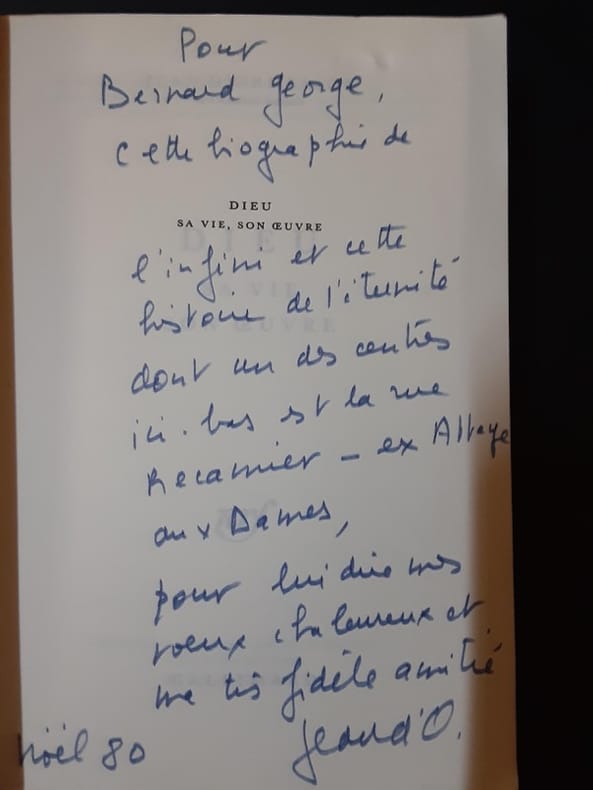 Pour
Bernard George,
cette biographie de
DIEU
SA VIE, SON ŒUVRE
l'infini et cette
histoire de l'éternité
dont un des centres
ici-bas est la rue
Récamier – ex Abbaye
aux Dames,
pour lui dire mes
vœux chaleureux et
ma très fidèle amitié
Jean d'O.
Noël 80